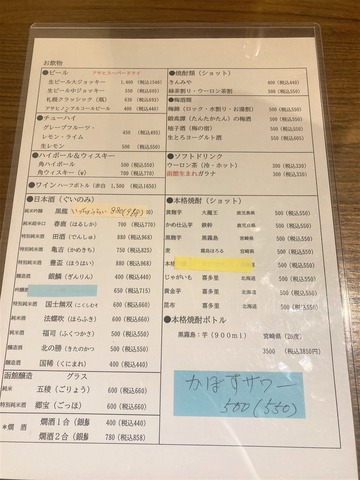 お飲物
●ビール アサヒスーパードライ
生ビール大ジョッキー 1,400 (税込1540)
生ビール中ジョッキー 550 (税込605)
札幌クラシック(瓶) 630 (税込693)
アサヒノンアルコールビール 400 (税込440)
●チューハイ
グレープフルーツ・
レモン・ライム 450 (税込495)
生レモン 530
●ハイボール&ウィスキー
角ハイボール 500 (税込550)
角ウィスキー 700 (税込770)
●ワイン ハーフボトル (赤白 1,500 (税込1650)
●日本酒(ぐいのみ)
純米吟醸 黒龍
純米超辛口 春鹿 (はるしか) 700 (税込770)
特別純米 田酒 (でんしゅ) 800 (税込880)
純米 亀吉 (かめきち) 750 (税込825)
純米 豊盃 (ほうはい) 800 (税込880)
醸造酒 銀鱗 (ぎんりん) 400 (税込440)
650 (税込715)
特別純米酒 国士無双 (にくしむそ) 600 (税込660)
純米 法螺吹 (ほらふき) 500 (税込550)
純米 福司 (ふくつかさ) 500 (税込550)
醸造酒 北の勝 (きたのかつ) 500 (税込550)
醸造酒 国稀 (くにまれ) 400 (税込440)
函館醸造 グラス
純米 五稜 (ごりょう) 600 (税込660)
特別純米 郷宝 (ごっほ) 600 (税込660)
*燗 酒 燗酒1合 (銀鱗 400 (税込440)
燗酒2合 (銀鱗 780 (税込858)
●焼酎類(ショット)
きんみや 400 (税込440)
緑茶割り・ウーロン茶割 500 (税込550)
●梅酒類
梅錦 (ロック・水割り・お湯割) 500 (税込550)
鍛高譚 (たんたかたん) の梅酒 500 (税込550)
柚子酒 (梅の宿) 500 (税込550)
生とろヨーグルト酒 500 (税込550)
●ソフトドリンク
ウーロン茶 (冷・ホット) 300 (税込330)
函館生まれガラナ 300 (税込330)
●本格焼酎(ショット)
黒麹芋 大魔王 鹿児島県 500 (税込550)
かめ仕込芋 鉄幹 鹿児島県 500 (税込550)
黒麹芋 黒霧島 宮崎県 500 (税込550)
麦 宮崎県 500 (税込550)
本格
じゃがいも 喜多里 北海道 500 (税込550)
黄金芋 喜多里 北海道 500 (税込550)
昆布 喜多里 北海道 500 (税込550)
●本格焼酎ボトル
黒霧島:芋 (900ml) 宮崎県 (20度)
3500 (税込3850円)
かぼすサワー
500 (550)